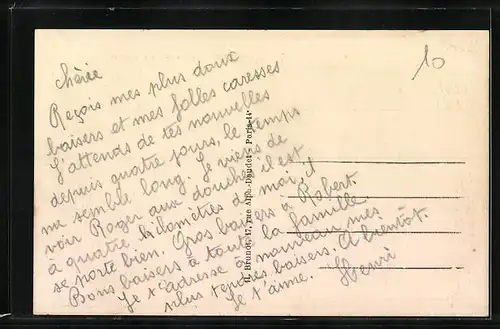 Chérie
Reçois mes plus doux
baisers et mes folles caresses
J'attends de tes nouvelles
depuis quatre jours, le temps
me semble long. Je viens de
voir Roger aux douches, il est
à quatre kilomètres de moi, il
se porte bien. Gros baisers à Robert
Bons baisers à toute la famille
Je t'adresse à nouveau mes
plus tendres baisers. A bientôt.
Je t'aime. Henri
10
H. Brunot, 17, rue Alph.-Daudet, Paris-14ᵉ